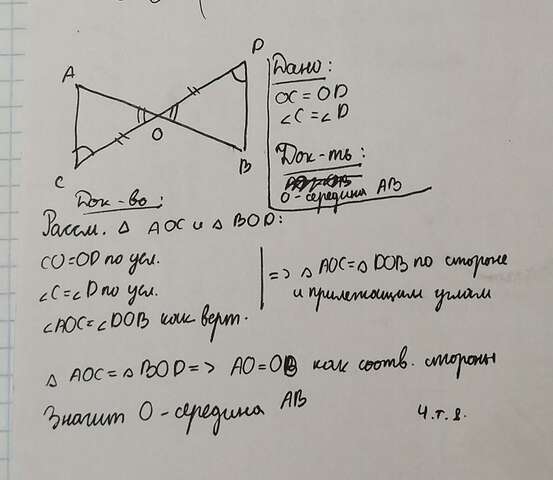 A
D
O
C
B
Дано:
OC = OD
∠C = ∠D
Док-ть:
O - середина AB
Док-во:
Рассм. △ AOC и △ BOD:
CO = OD по усл.
∠C = ∠D по усл.
∠AOC = ∠DOB как верт.
=> △ AOC = △ DOB по стороне
и прилежащим углам
△ AOC = △ BOD => AO = OB как соотв. стороны
Значит O - середина AB
ч.т.д.